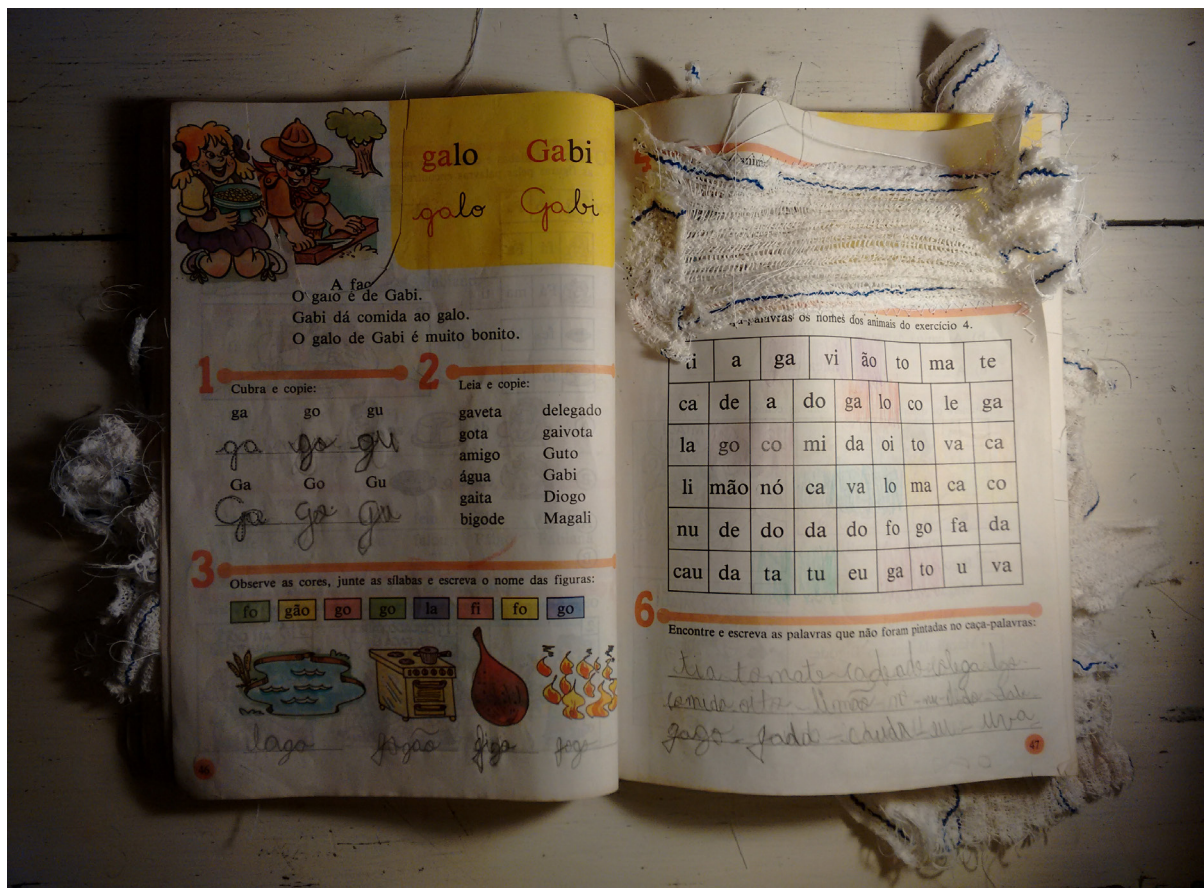 galo Gabi
galo Gabi
A
O galo é de Gabi.
Gabi dá comida ao galo.
O galo de Gabi é muito bonito.
1 Cubra e copie:
ga go gu
ga go gu
Ga Go Gu
Ga Go Gu
2 Leia e copie:
gaveta delegado
gota gaivota
amigo Guto
água Gabi
gaita Diogo
bigode Magali
3 Observe as cores, junte as sílabas e escreva o nome das figuras:
fo gão go go la fi fo go
lago fogão figo fogo
46
5
os nomes dos animais do exercício 4.
ti a ga vi ão to ma te
ca de a do ga lo co le ga
la go co mi da oi to va ca
li mão nó ca va lo ma ca co
nu de do da do fo go fa da
cau da ta tu eu ga to u va
6 Encontre e escreva as palavras que não foram pintadas no caça-palavras:
tia tomate
comida oito limão
fada cauda eu uva
47